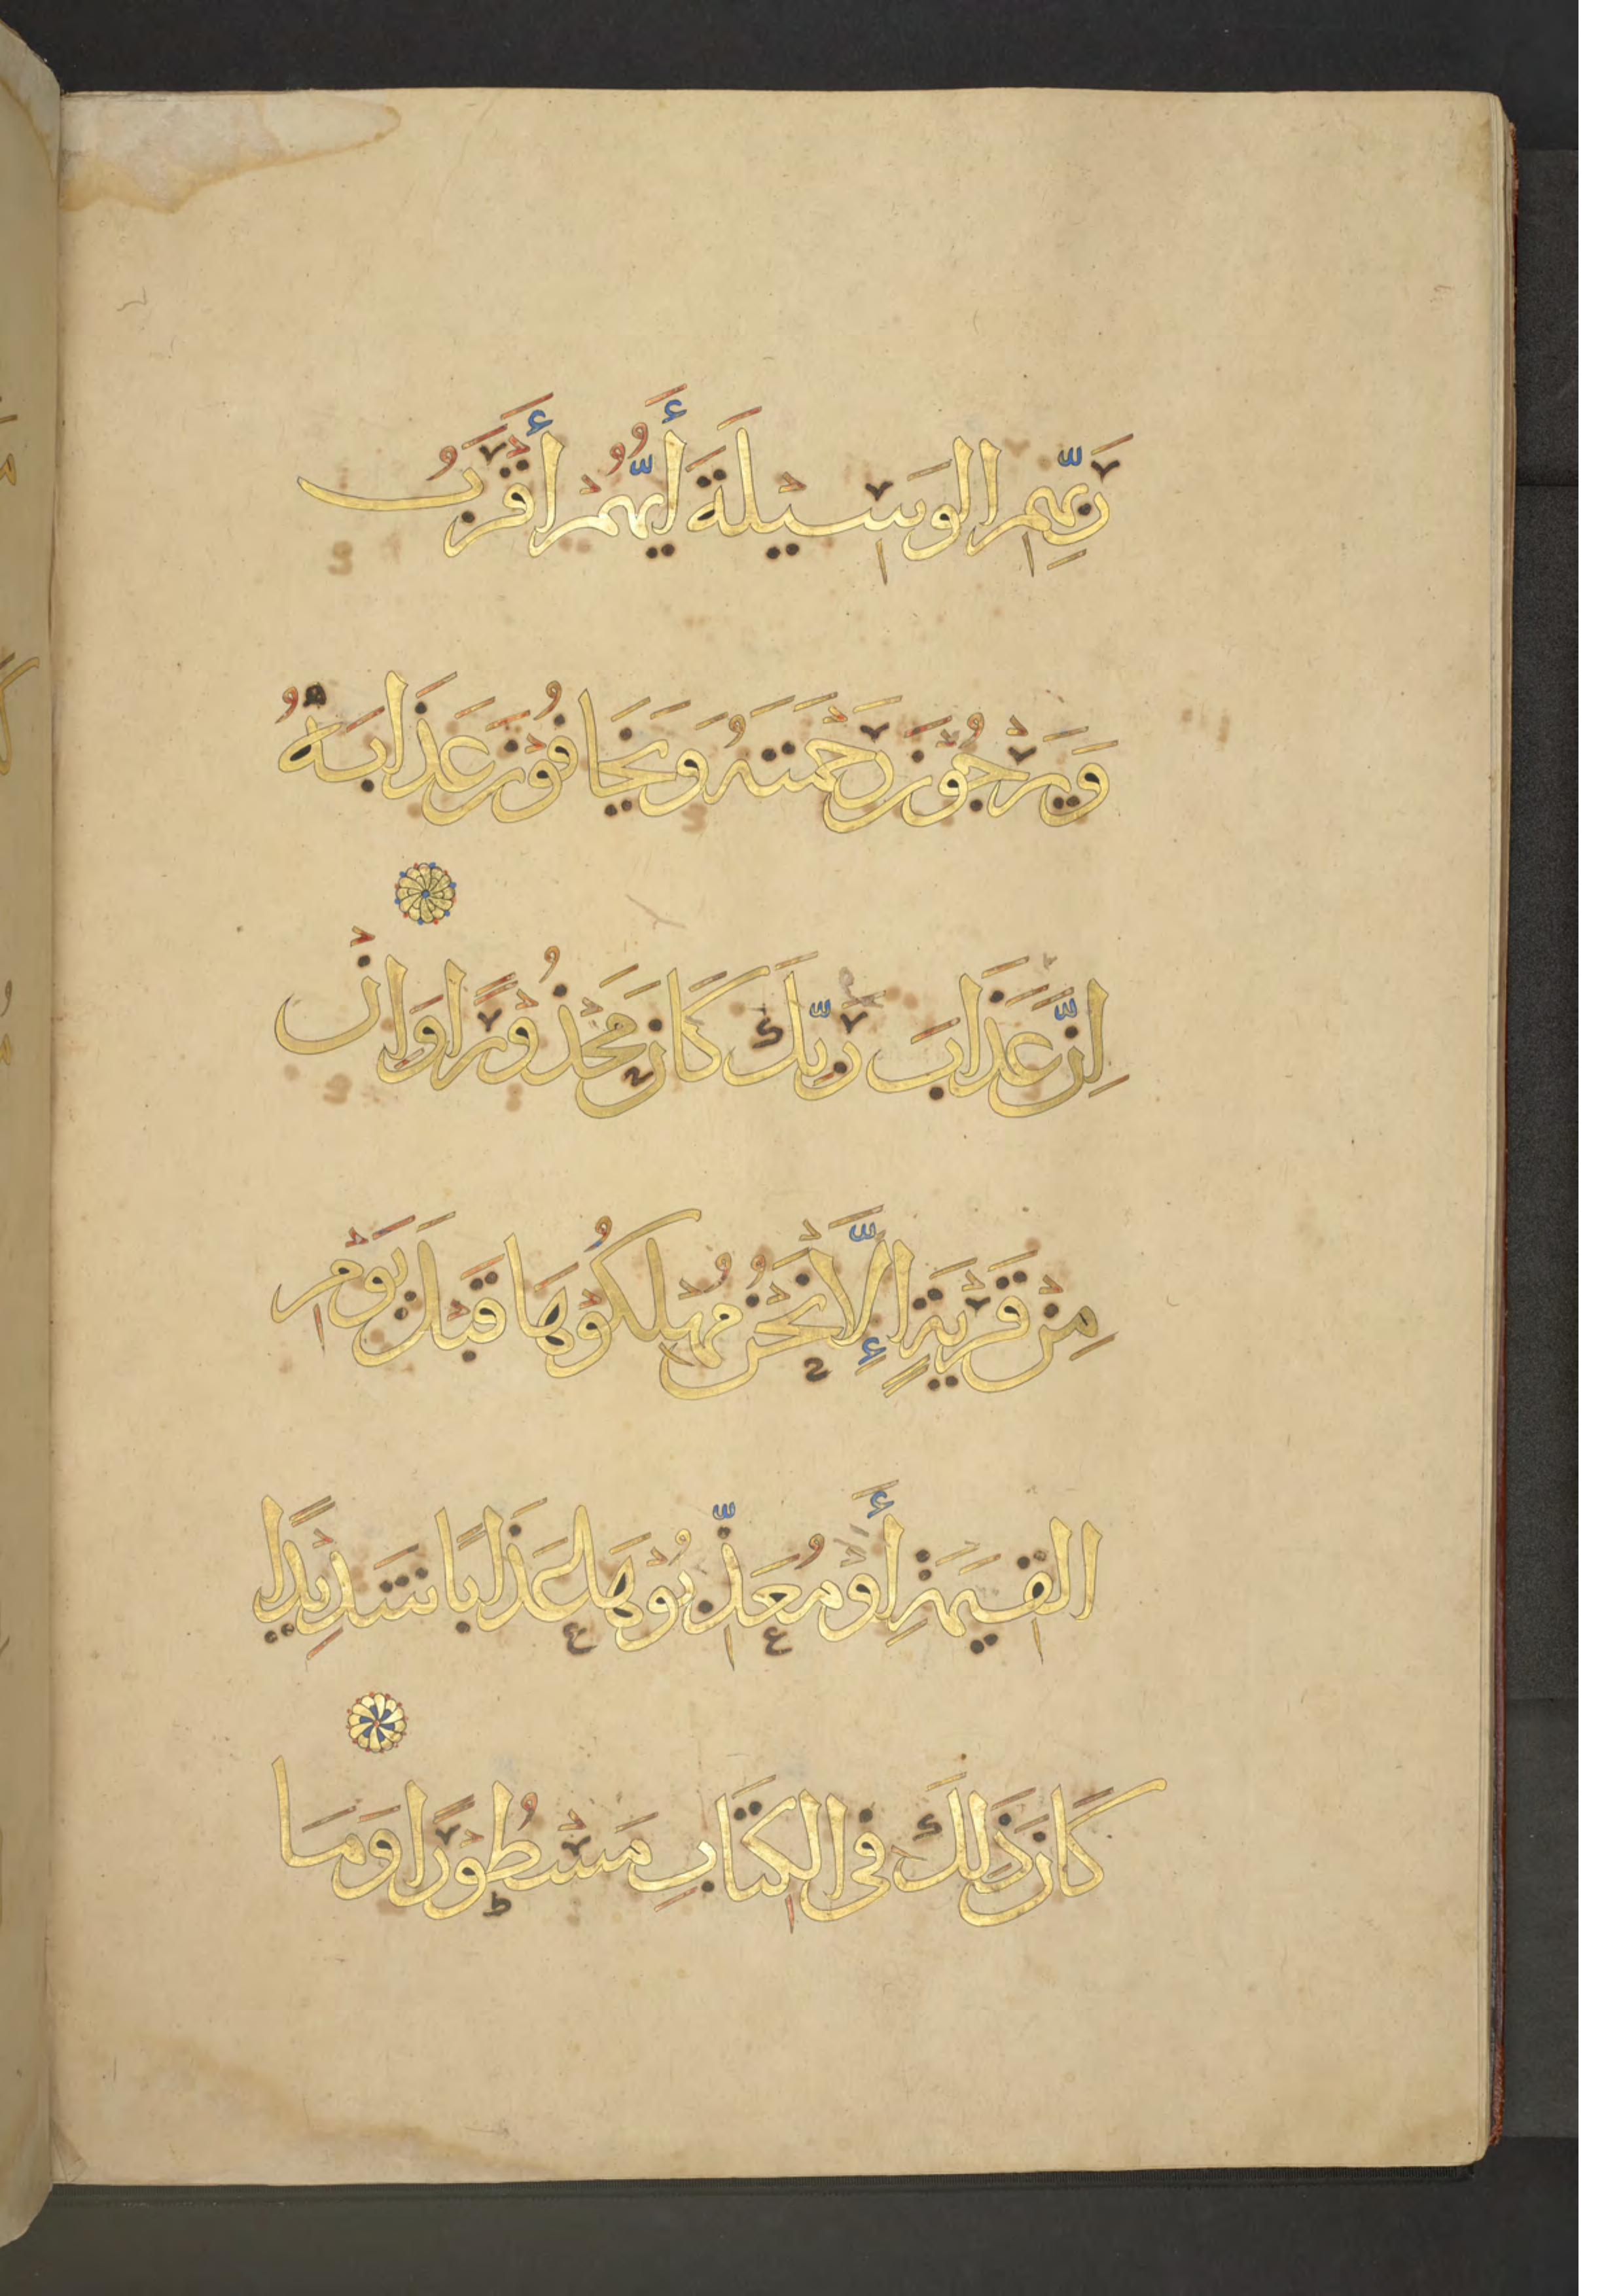 رَبِّهِمِ الْوَسِيلَةَ أَيُّهُمْ أَقْرَبُ
وَيَرْجُوْنَ رَحْمَتَهُ وَيَخَافُوْنَ عَذَابَهُ
اِنَّ عَذَابَ رَبِّكَ كَانَ مَحْذُوْرًا وَاِنْ
مِنْ قَرْيَةٍ اِلَّا نَحْنُ مُهْلِكُوْهَا قَبْلَ يَوْمِ
الْقِيٰمَةِ أَوْ مُعَذِّبُوْهَا عَذَابًا شَدِيْدًا
كَانَ ذَلِكَ فِى الْكِتَابِ مَسْطُوْرًا وَمَا